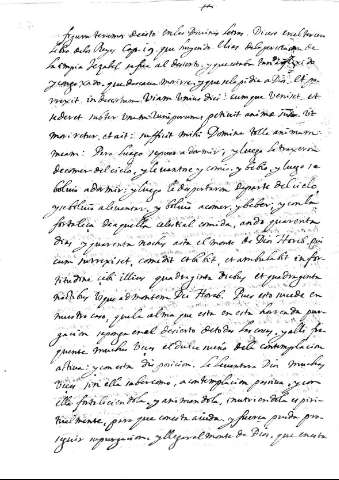 figura tenemos de esto en las Divinas Letras. Dicese en el tercero
libro de los Reyes Cap. 19. que huyendo Elias de la persecucion de
la impia Jezabel salió al desierto, y que estaba tan afligido
y congojado, que deseaua morirse, y que se lo pidio a Dios. Et per
rrexit, in desertum Viam unius diei: cumque veniret, et
sederet subter unam iuniperum petivit anima suae Vt
moreretur, et ait: sufficit mihi Domine tolle animam
meam: Pero luego se puso a dormir; y luego le traxeron
de comer del cielo, y leuantose y comio, y bebio, y luego se
boluio a dormir; y luego le despertaron de parte del cielo,
y se boluio a leuantar, y boluio a comer, y beber; y con la
fortaleza de aquella celestial comida, anduvo quarenta
dias, y quarenta noches asta el monte de Dios Horeb, qui
cum surrexisset, comedit et bibit, et ambulabit in for
titudine cibi illius quadraginta diebus, et quadraginta
noctibus usque ad montem Dei Horeb. Pues esto sucede en
nuestro caso, que la alma que esta en esta horrenda pur
gacion se pone en el desierto de todas las cosas, y alli fre
quenta muchas veces el dulce sueño de la contemplacion
activa: y con esta disposicion, la leuanta Dios muchas
veces sin ella saber como, a contemplacion passiva, y con
ella fortaleciendola, y animandola, nutriendola espiri
tualmente, para que con esta aiuda, y fuerça pueda pro
seguir su purgacion, y llegar al monte de Dios, que en esta